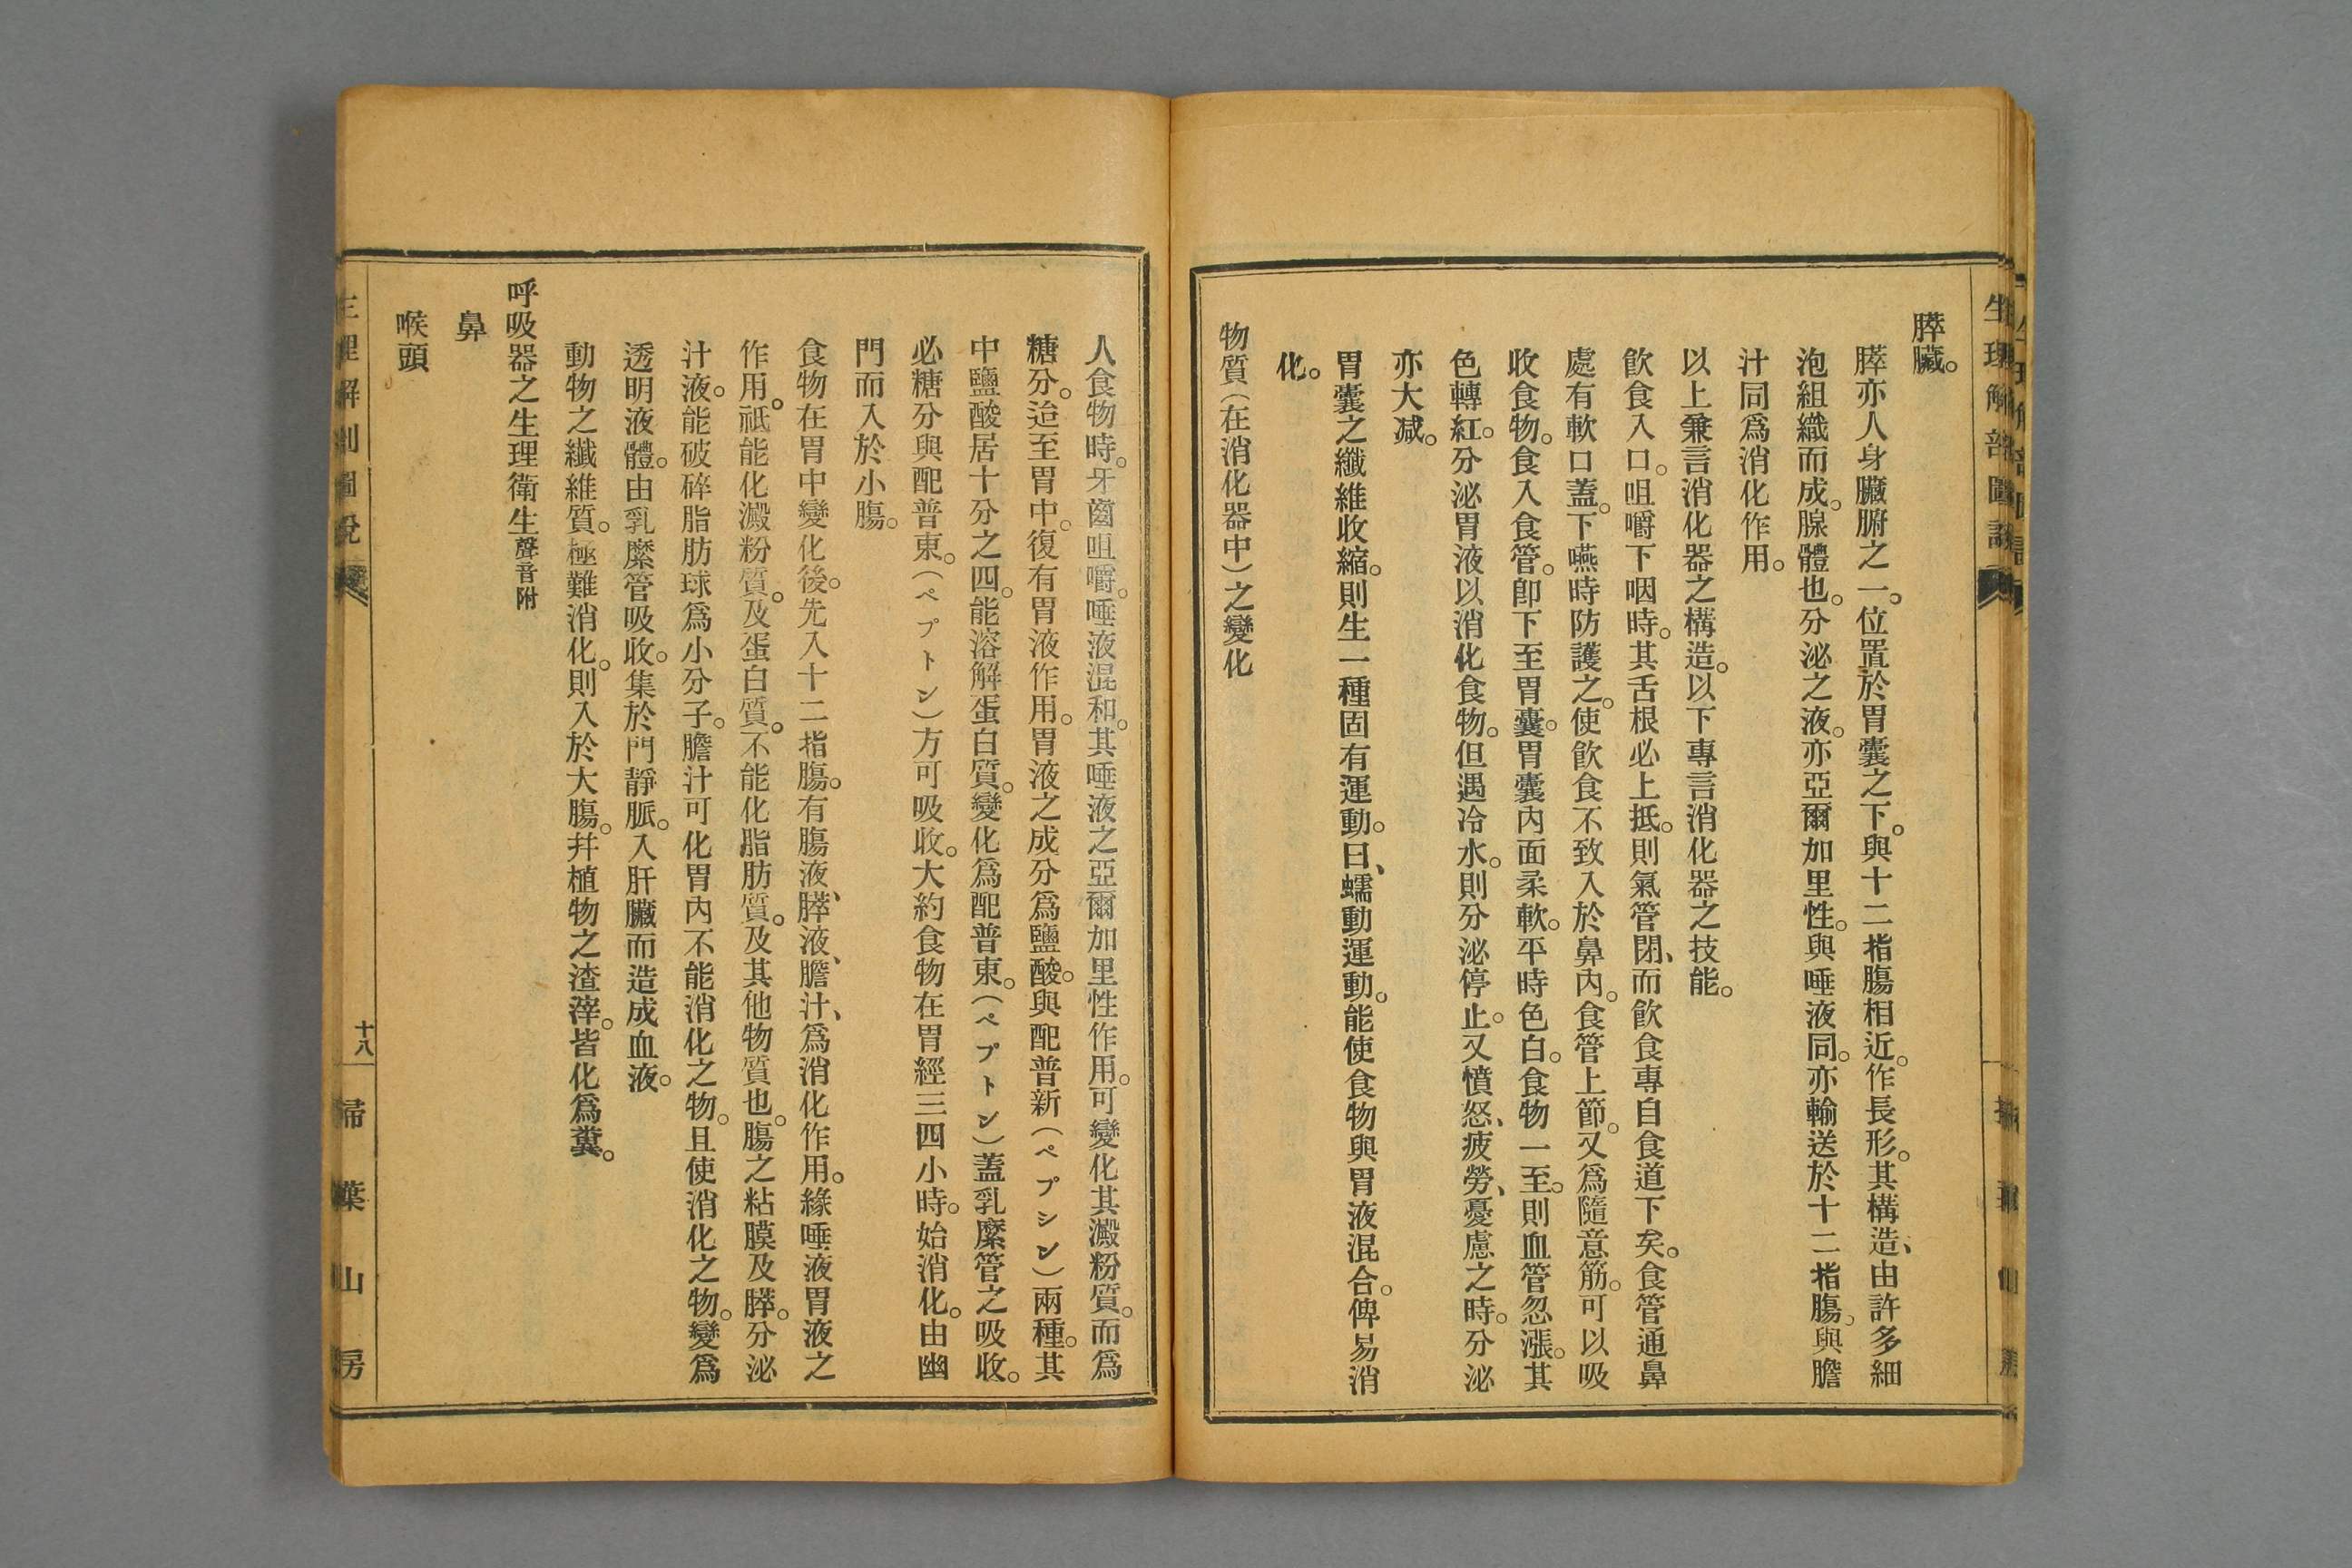 生理解剖圖說
膵臟。
膵亦人身臟腑之一。位置於胃囊之下。與十二指膓相近。作長形。其構造、由許多細
泡組織而成。腺體也。分泌之液。亦亞爾加里性。與唾液同。亦輸送於十二指膓。與膽
汁同爲消化作用。
以上兼言消化器之構造。以下專言消化器之技能。
飮食入口。咀嚼下咽時。其舌根必上抵。則氣管閉、而飮食專自食道下矣。食管通鼻
處有軟口蓋。下嚥時防護之。使飮食不致入於鼻內。食管上節。又爲隨意筋。可以吸
收食物。食入食管。卽下至胃囊。胃囊內面柔軟。平時色白。食物一至。則血管忽漲。其
色轉紅。分泌胃液以消化食物。但遇冷水。則分泌停止。又憤怒、疲勞、憂慮之時。分泌
亦大减。
胃囊之纖維收縮。則生一種固有運動。曰、蠕動運動。能使食物與胃液混合。俾易消
化。
物質（在消化器中）之變化
人食物時。牙齒咀嚼。唾液混和。其唾液之亞爾加里性作用。可變化其澱粉質。而爲
糖分。迨至胃中。復有胃液作用。胃液之成分爲鹽酸。與配普新（ペプシン）兩種。其
中鹽酸居十分之四。能溶解蛋白質。變化爲配普東。（ペプトン）蓋乳糜管之吸收。
必糖分與配普東。（ペプトン）方可吸收。大約食物在胃經三四小時。始消化。由幽
門而入於小膓。
食物在胃中變化後。先入十二指膓。有膓液、膵液、膽汁、爲消化作用。緣唾液胃液之
作用。祇能化澱粉質。及蛋白質。不能化脂肪質。及其他物質也。膓之粘膜及膵。分泌
汁液。能破碎脂肪球爲小分子。膽汁可化胃內不能消化之物。且使消化之物。變爲
透明液體。由乳糜管吸收。集於門靜脈。入肝臟而造成血液。
動物之纖維質。極難消化。則入於大膓。幷植物之渣滓。皆化爲糞。
呼吸器之生理衞生聲音附
鼻
喉頭
生理解剖圖說
十八
掃葉山房